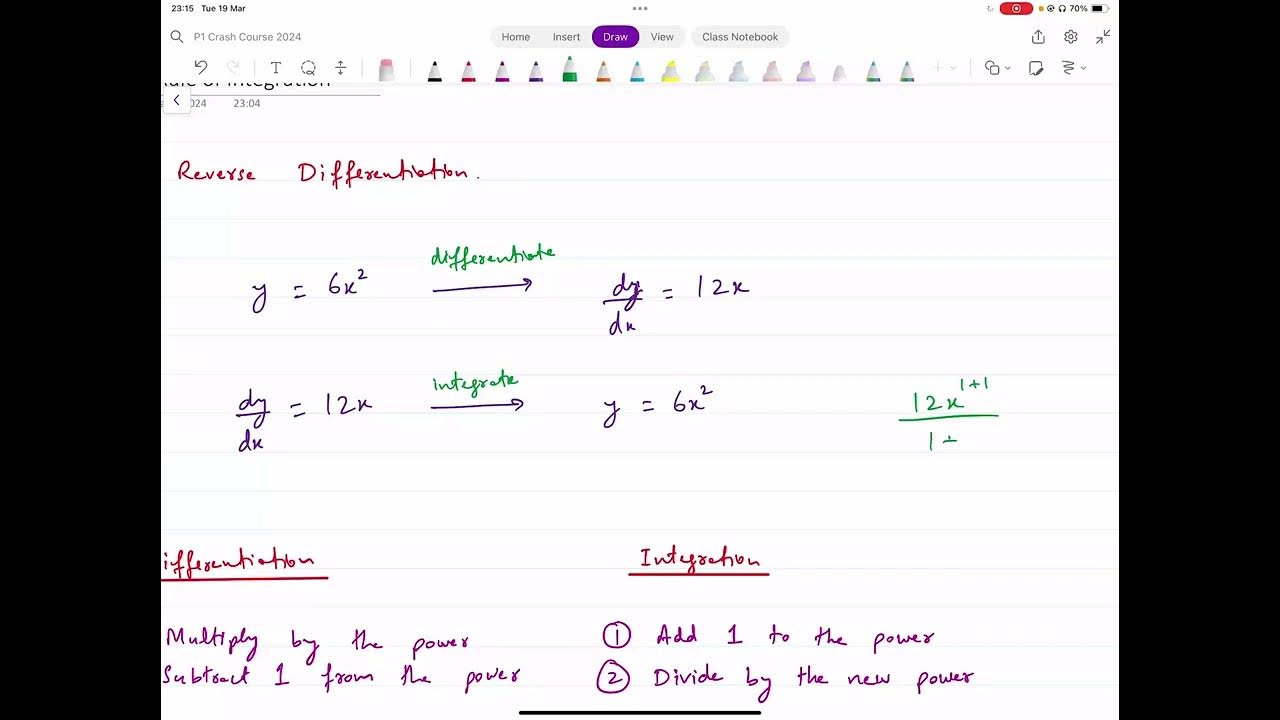 23:15 Tue 19 Mar
70%
P1 Crash Course 2024
Home Insert Draw View Class Notebook
Rule of Integration
2024 23:04
Reverse Differentiation.
differentiate
y = 6x² dy/dx = 12x
integrate
dy/dx = 12x y = 6x² 12x¹⁺¹
1 +
ifferentiation Integration
Multiply by the power ① Add 1 to the power
Subtract 1 from the power ② Divide by the new power